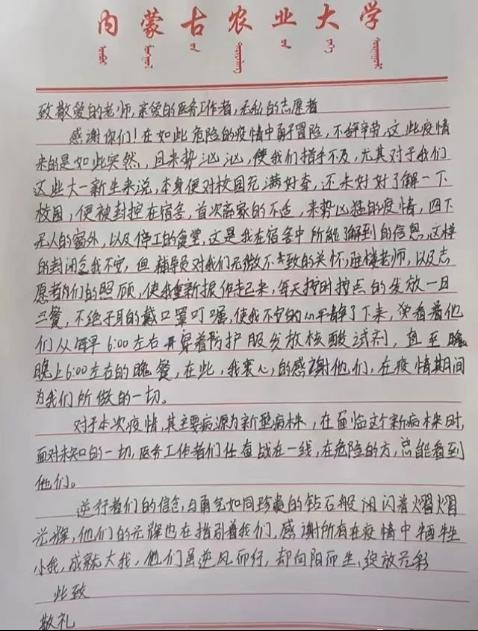 内蒙古农业大学
致敬爱的老师,亲爱的医务工作者,无私的志愿者
感谢你们!在如此危险的疫情中勇于冒险,不辞辛劳,这些疫情
来的是如此突然,且来势汹汹,使我们措手不及,尤其对于我们
这些大一新生来说,本身便对校园充满好奇,还未好好了解一下
校园,便被封控在宿舍,首次离家的不适,来势凶猛的疫情,四下
无人的窗外,以及停工的食堂,这是我在宿舍中所能了解到的信息,这样
的封闭令我不安,但辅导员对我们无微不至的关怀,班楼老师,以及志
愿者们的照顾,使我重新振作起来,每天按时按点的发放一日
三餐,不绝于耳的戴口罩叮嘱,使我不安的心平静了下来,看着他
们从每早6:00左右穿着防护服分放核酸试剂,直至晚
晚上6:00左右的晚餐,在此,我衷心的感谢他们,在疫情期间
为我们所做的一切。
对于本次疫情,其主要病源为新型病株,在面临这个新病株时,
面对未知的一切,医务工作者们任奋战在一线,在危险的方,总能看到
他们。
逆行者们的信念与勇气如同珍贵的钻石般闪闪着熠熠
光辉,他们的光辉也在指引着我们,感谢所有在疫情中牺牲
小我,成就大我,他们虽逆风而行,却向阳而生,绽放光彩
此致
敬礼